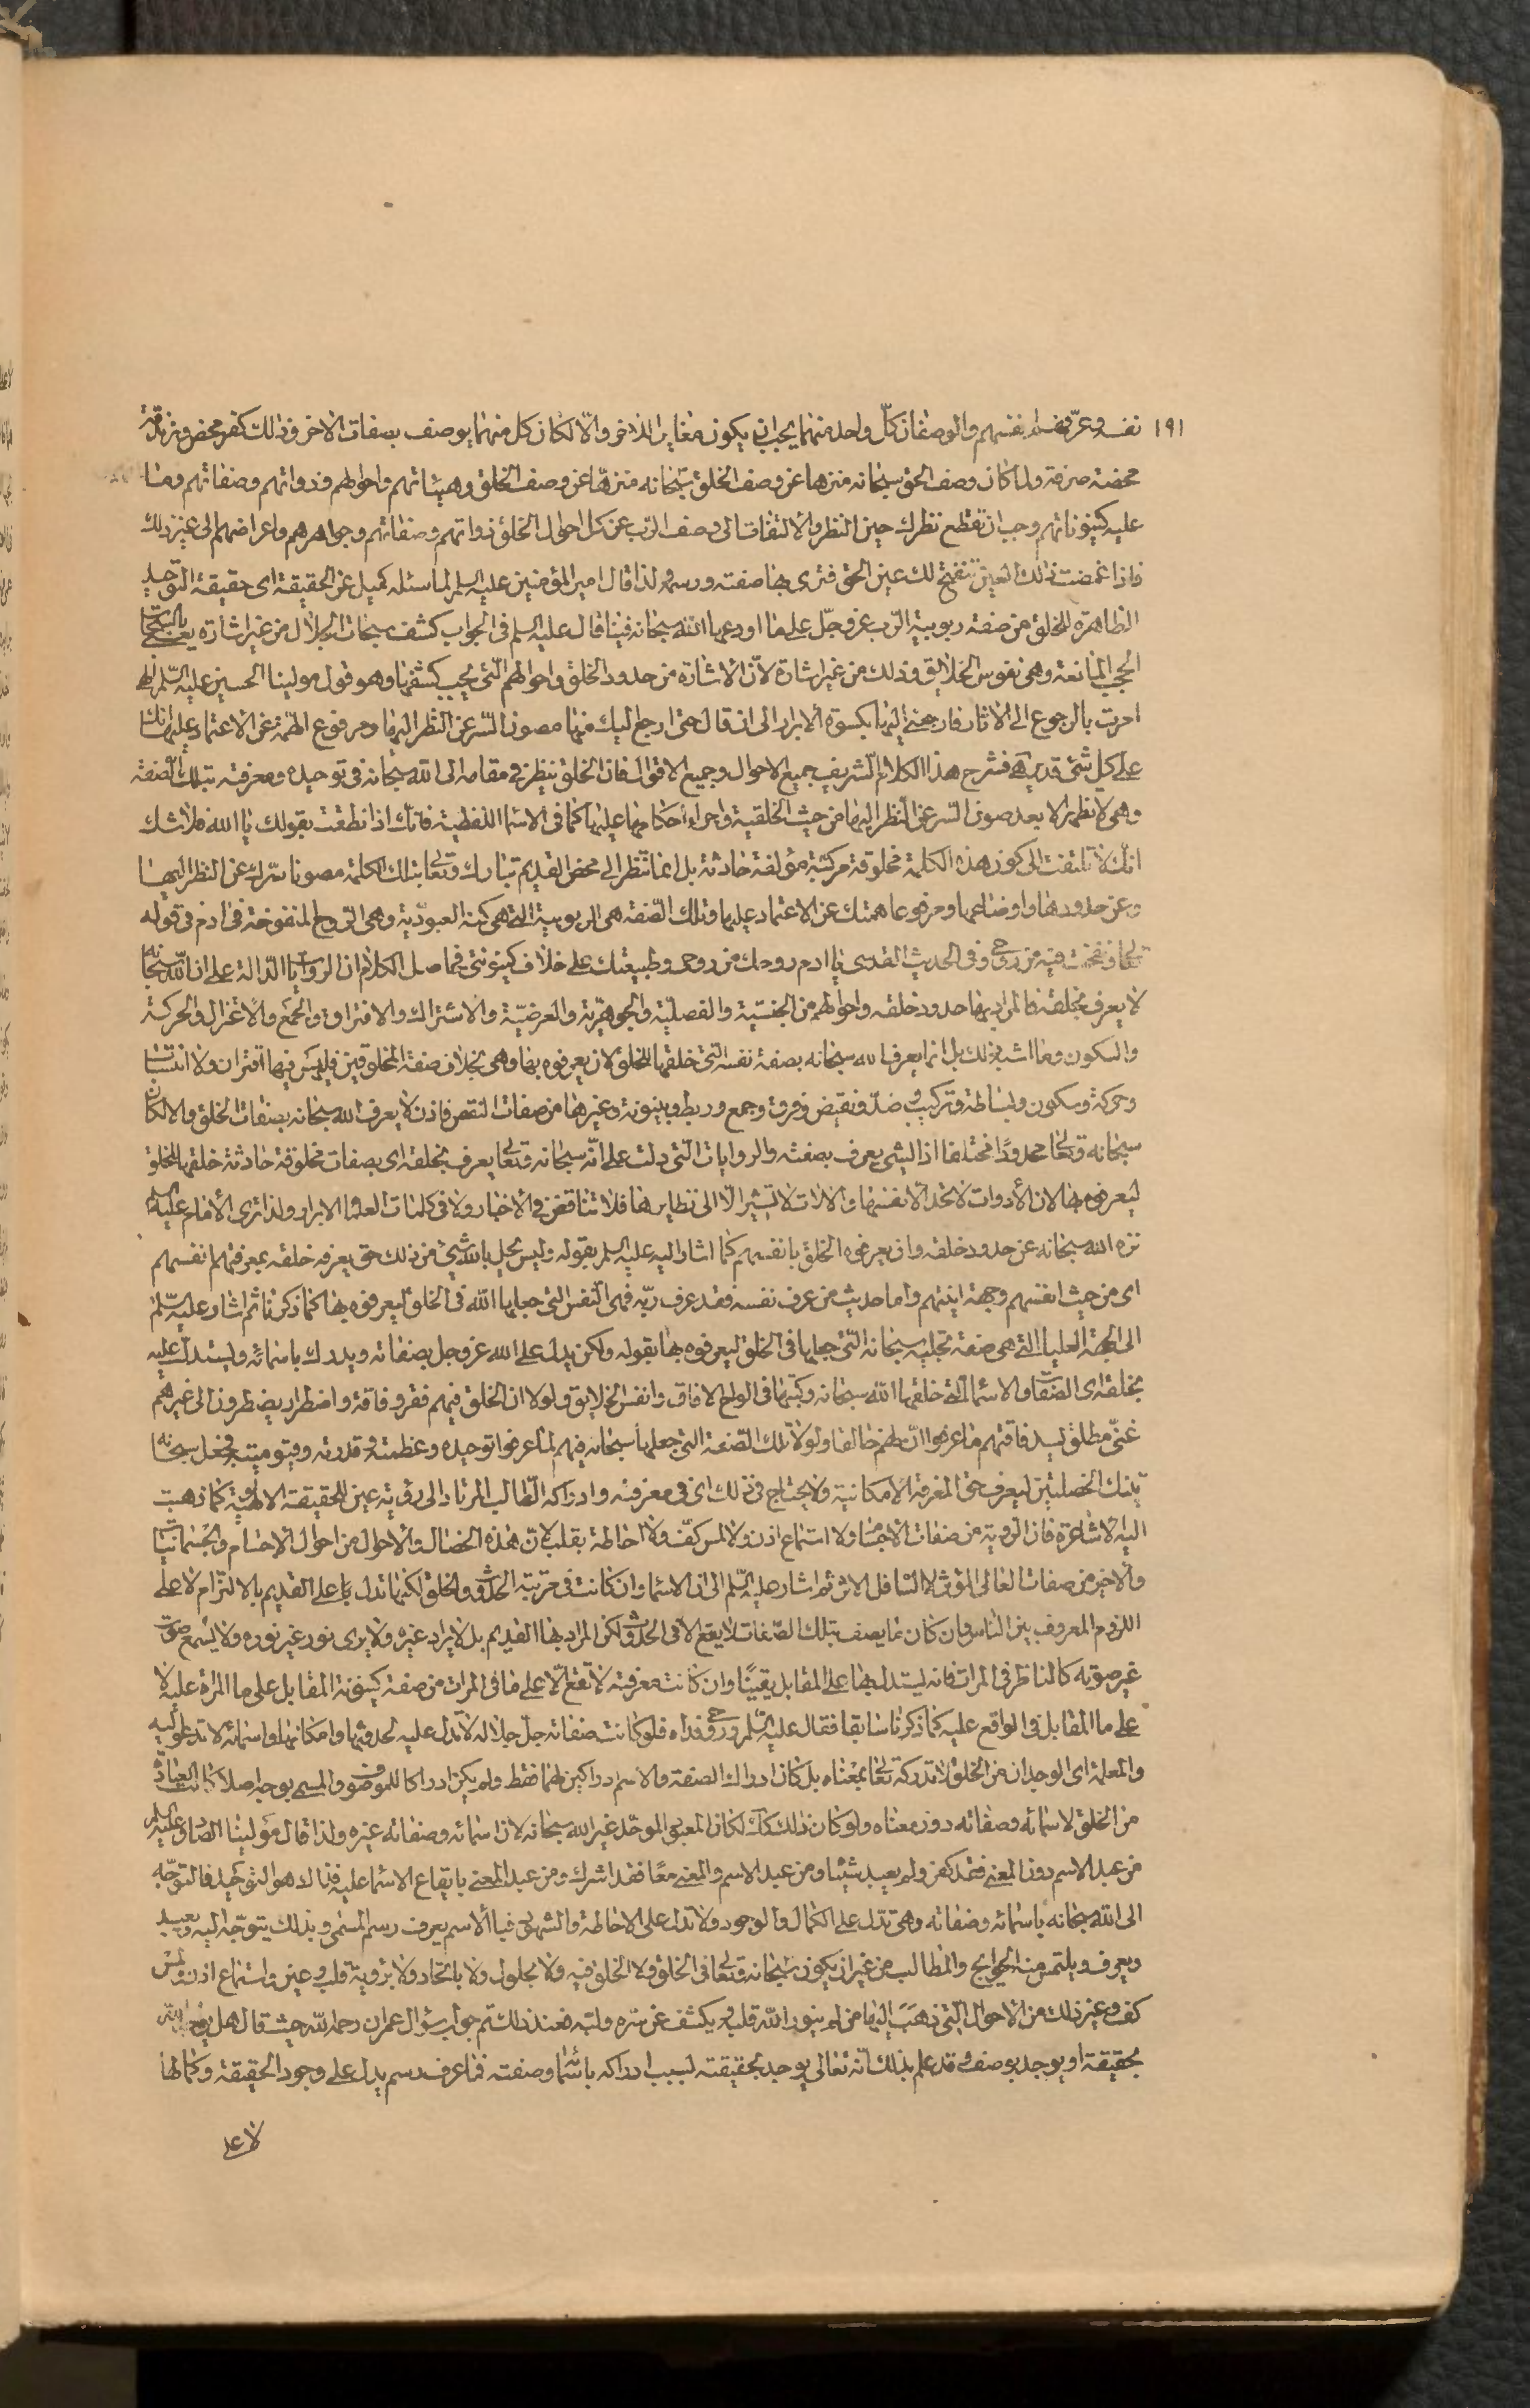 ١٩١
نفسه وعرّفهم انفسهم والوصفان كلّ واحد منهما يجب ان يكون مغايرا للاخر والّا لكان كل منهما يوصف بصفات الاخر وذلك كفر محض وزندقة
محضة صرفة ولما كان وصف الحق سبحانه منزها عن وصف الخلق سبحانه منزّها عن وصف الخلق وهيئاتهم واحوالهم وذواتهم وصفاتهم وما
عليه كينوناتهم وجب ان تقطع نظرك حين النظر والالتفات الى وصف الرّب عن كل احوال الخلق ذواتهم وصفاتهم وجواهرهم واعراضهم الى غير ذلك
فاذا غمضت ذلك العين تنفتح لك عين الحق فترى بها صفته ورسمه ولذا قال امير المؤمنين عليه السلم لما سئله كميل عن الحقيقة اى حقيقة التوحيد
الظاهرة للخلق من صفة ربوبية الرّب عز وجلّ على ما اودعها الله سبحانه فينا قال عليه السلم فى الجواب كشف سبحات الجلال من غير اشارة يعنى بالسبحات
الحجب المانعة وهى نفوس الخلايق وذلك من غير اشارة لانّ الاشارة من حدود الخلق واحوالهم الّتى يجب كشفها وهو قول مولينا الحسين عليه السّلم الهى
امرت بالرجوع الى الاثار فارجعنى اليها بكسوة الابرار الى ان قال حتى ارجع اليك منها مصون السّر عن النّظر اليها ومرفوع الهمّة عن الاعتماد عليها انك
على كل شئ قدير هـ فشرح هذا الكلام الشريف جميع الاحوال وجميع الاقوال فان الخلق ينظر فى مقامه الى الله سبحانه فى توحيده ومعرفته بتلك الصّفة
وهى لا تظهر الا بعد صون السّر عن النظر اليها من حيث الخلقية واجراء احكامها عليها كما فى الاسماء اللفظية فانّك اذا نطقت بقولك يا الله فلا شك
انّك لا تلتفت الى كون هذه الكلمة مخلوقة مركّبة مؤلفة حادثة بل انما تنظر الى محض القديم تبارك وتعالى بتلك الكلمة مصونا سرّك عن النظر اليها
وعن حدودها واوضاعها ومرفوعا همتك عن الاعتماد عليها وتلك الصّفة هى الربوبية الّتى هى كنه العبوديّة وهى الروح المنفوخة فى ادم فى قوله
تعالى ونفخت فيه من روحى وفى الحديث القدسى يا ادم روحك من روحى وطبيعتك على خلاف كينونتى فحاصل الكلام ان الروايات الدّالة على ان الله سبحانه
لا يعرف بخلقه فالمراد بها حدود خلقه واحوالهم من الجنسيّة والفصليّة والجوهريّة والعرضيّة والاشتراك والافتراق والجمع والانعزال والحركة
والسكون وما اشبه ذلك بل انما يعرف الله سبحانه بصفة نفسه الّتى خلقها للخلق لان يعرفوه بها وهى بخلاف صفة المخلوقين فليس فيها اقتران ولا انتساب
وحركة وسكون وبساطة وتركيب وضدّ ونقيض وفرق وجمع وربط وبينونة وغيرها من صفات النقص فاذن لا يعرف الله سبحانه بصفات الخلق والا لكان
سبحانه وتعالى محدودًا مختلفا اذ الشئ يعرف بصفته والروايات الّتى دلت على انّه سبحانه وتعالى يعرف بخلقه اى بصفات مخلوقة حادثة خلقها للخلق
ليعرفوه بها لان الادوات لا تحد الا نفسها والالات لا تشير الّا الى نظايرها فلا تناقض فى الاخبار ولا فى كلمات العلماء الابرار ولذا ترى الامام عليه السلم
نزه الله سبحانه عن حدود خلقه وان يعرفوه الخلق بانفسهم كما اشار اليه عليه السلم بقوله وليس يحل بالله شئ من ذلك حتى يعرفه خلقه بمعرفتهم انفسهم
اى من حيث انفسهم وجهة انيتهم واما حديث من عرف نفسه فقد عرف ربّه فهى النفس التى جعلها الله فى الخلق ليعرفوه بها كما ذكرنا ثم اشار عليه السّلم
الى الجهة العليا الّتى هى صفة تجليه سبحانه الّتى جعلها فى الخلق ليعرفوه بها بقوله ولكن يدل على الله عز وجل بصفاته ويدرك باسمائه ويستدل عليه
بخلقه اى الصّفات والاسماء الّتى خلقها الله سبحانه وكتبها فى الواح الافاق وانفس الخلايق ولولا ان الخلق فيهم فقر وفاقة واضطرار يضطرون الى غيرهم
غنىّ مطلق ليسد فاقتهم ما عرفوا انّ لهم خالقا ولولا تلك الصّفة التى جعلها سبحانه فيهم لما عرفوا توحيده وعظمته وقدرته وقيوميته فجعل سبحانه
تينك الخصلتين ليعرف حق المعرفة الامكانية ولا يحتاج فى ذلك اى فى معرفته وادراكه الطّالب المرتاد الى رؤية عين للحقيقة الالهية كما ذهبت
اليه الاشاعرة فان الروية من صفات الاجسام ولا استماع اذن ولا لمس كفّ ولا احاطة بقلب لانّ هذه الخصال والاحوال من احوال الاجسام والجسمانيات
والاخير من صفات العالى المؤثر لا السّافل الاثر ثم اشار عليه السّلم الى ان الاسماء وان كانت فى مرتبة الحدوث والخلق لكنها تدل بها على القديم بالالتزام لا على
اللزوم المعروف بين الناس وان كان ما يصف بتلك الصّفات لا يقع الا فى الحدوث لكن المراد بها القديم بل لا يراد غيره ولا يرى نور غير نوره ولا يسمع صوت
غير صوته كالناظر فى المرات فانه يستدل بها على المقابل يقينًا وان كانت معرفته لا تقع الّا على ما فى المرات من صفة كينونة المقابل على ما المراة عليه لا
على ما المقابل فى الواقع عليه كما ذكرنا سابقا فقال عليه السّلم وروحى فداه فلو كانت صفاته جلّ جلاله لا تدل عليه لحدوثها وامكانها واسمائه لا تدعو اليه
والمعلمة اى الوجدان من الخلق لا تدركه تعالى بمعناه بل كان ادراك الصفة والاسم ادراكين لهما فقط ولم يكن ادراكا للموصوف والمسمى بوجه اصلا كانت العبادة
من الخلق لاسمائه وصفاته دون معناه ولو كان ذلك كك لكان المعبود الموحّد غير الله سبحانه لان اسمائه وصفاته غيره ولذا قال مولينا الصّادق عليه السلم
من عبد الاسم دون المعنى فقد كفر ولم يعبد شيئا ومن عبد الاسم والمعنى معًا فقد اشرك ومن عبد المعنى بايقاع الاسماء عليه فذلك هو التوحيد فالتوجّه
الى الله سبحانه باسمائه وصفاته وهى تدل على الكمال والوجود ولا تدل على الاحاطة والشهود فبالاسم يعرف رسم المسمى وبذلك يتوجّه اليه ويعبد
ويعرف ويلتمس منه الحوايج والمطالب من غير ان يكون سبحانه وتعالى فى الخلق ولا الخلق فيه ولا بحلول ولا باتحاد ولا برؤية قلب وعين واستماع اذن ولمس
كف وغير ذلك من الاحوال الّتى ذهب اليها من لم ينور الله قلبه ويكشف عن سره ولبّه فعند ذلك تم جواب سؤال عمران رحمه الله حيث قال هل يوحد الله
بحقيقة او يوحد بوصف وقد علم بذلك انّه تعالى يوحد بحقيقته لسبب ادراكه باسماء وصفته فما عرف رسم يدل على وجود الحقيقة وكمالها
لا على